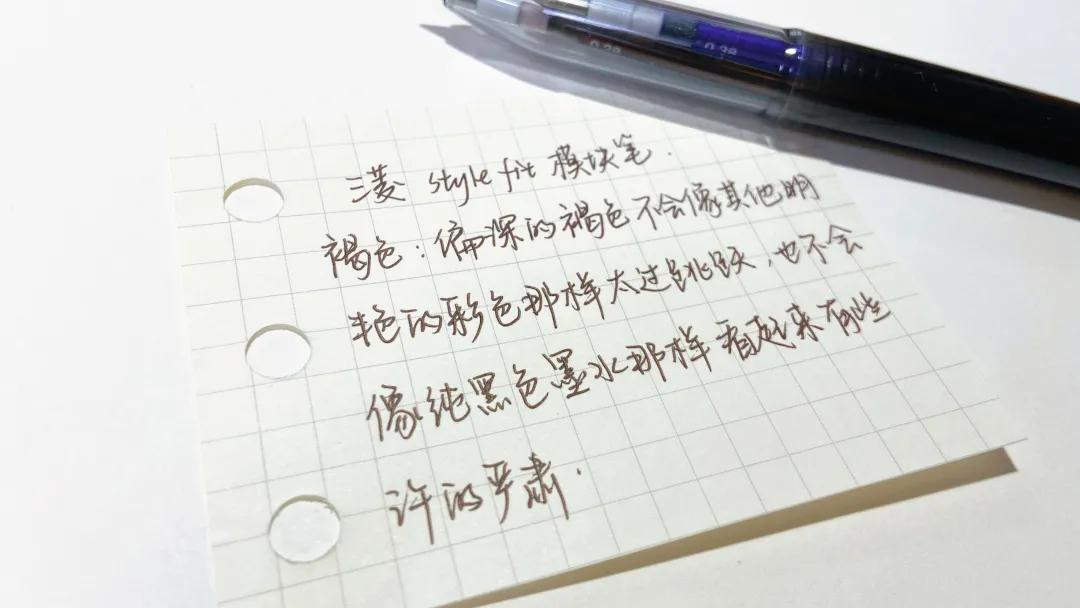 0.38
0.38
三菱 style fit 模块笔.
褐色:偏深的褐色不会像其他明
艳的彩色那样太过跳跃,也不会
像纯黑色墨水那样看起来有些
许的严肃.